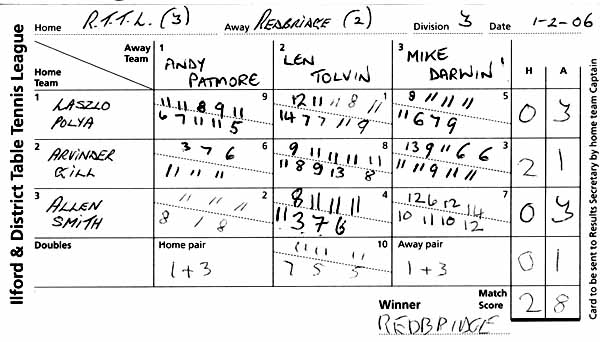 Ilford & District Table Tennis League
Home R.T.T.L. (3) Away REDBRIDGE (2) Division 3 Date 1-2-06
Away Team
Home Team
1 ANDY PATMORE
2 LEN TOLVIN
3 MIKE DARWIN
H A
1 LASZLO POLYA
9
11 11 8 9 11
6 7 11 11 5
1
12 11 11 8 11
14 7 7 11 9
5
8 11 11 11
11 6 7 9
0 3
2 ARVINDER GILL
6
3 7 6
11 11 11
8
9 11 11 11 11
11 8 9 13 8
3
13 9 11 6 6
11 11 9 11 11
2 1
3 ALLEN SMITH
2
11 11 11
8 1 8
4
8 11 11 11
11 3 7 6
7
12 6 12 14
10 11 10 12
0 3
Doubles
Home pair
1+3
10
11 11 11
7 5 5
Away pair
1+3
0 1
Winner
REDBRIDGE
Match Score
2 8
Card to be sent to Results Secretary by home team Captain